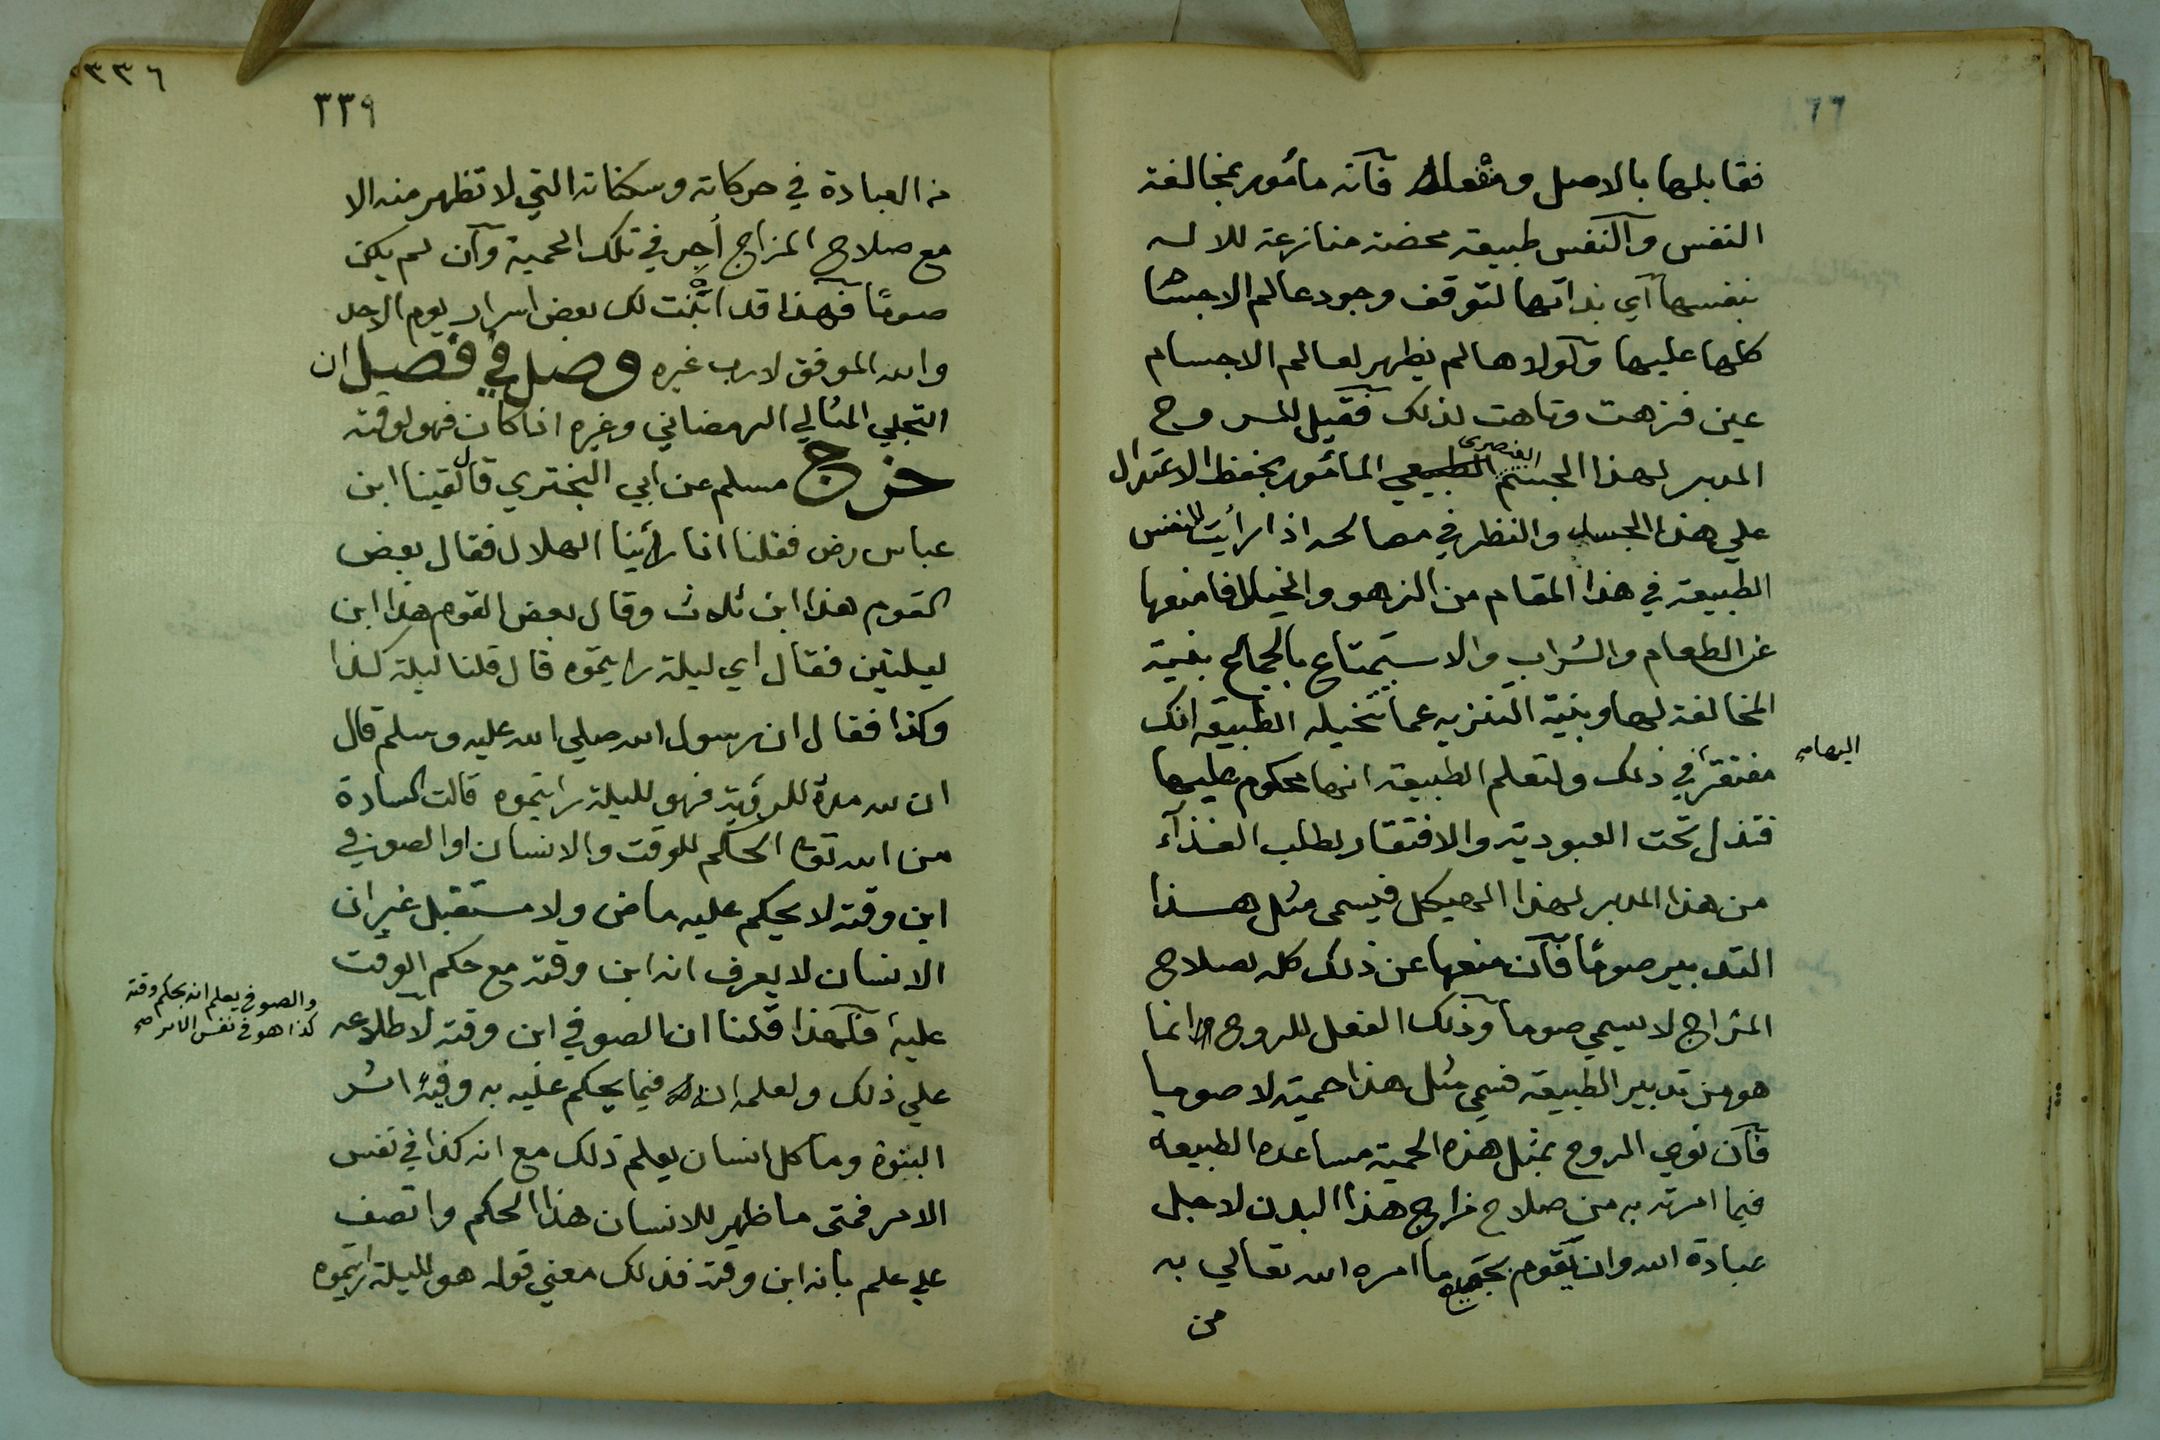 فقابلها بالاصل فانه مامور بمخالفة
النفس والنفس طبيعة محضة منازعة للاله
بنفسها اي بذاتها لتوقف وجود عالم الاجسام
كلها عليها ولولاها لم يظهر لعالم الاجسام
عين فزهت وتاهت لذلك فقيل للروح
المدبر لهذا الجسم العنصري المأمور بحفظ الاعتدال
علي هذا الجسد والنظر في مصالحه اذا رأيت النفس
الطبيعة في هذا المقام من الزهو والخيلا فامنعها
عن الطعام والشراب والاستمتاع بالجماع بنية
المخالفة لها وبنية التنزيه عما تتخيله الطبيعة انك
مفتقر في ذلك ولتعلم الطبيعة انها محكوم عليها
اليها صح
فتذل تحت العبودية والافتقار لطلب الغذآء
من هذا المدبر لهذا الهيكل فيسمى مثل هذا
التدبير صومًا فان منعها عن ذلك كله لصلاح
المزاج لا يسمي صوما وذلك الفعل للروح انما
هو من تدبير الطبيعة فسمي مثل هذا حمية لا صوما
فان نوي الروح بمثل هذه الحمية مساعدة الطبيعة
فيما امرته به من صلاح مزاج هذا البدن لاجل
عبادة الله وان يقوم بجميع ما امره الله تعالي به
من
٣٣٦
٣٣٩
من العبادة في حركاته وسكناته التي لا تظهر منه الا
مع صلاح المزاج أجر في تلك الحمية وان لم يكن
صومًا فهذا قد اثبت لك بعض اسرار يوم الاحد
والله الموفق لا رب غيره وصل في فصل ان
التجلي المثالي الرمضاني وغيره اذا كان فهو لوقته
خرج مسلم عن ابي البختري قال لقينا ابن
عباس رض فقلنا انا رأينا الهلال فقال بعض
القوم هذا ابن ثلاث وقال بعض القوم هذا ابن
ليلتين فقال اي ليلة رايتموه قال قلنا ليلة كذا
وكذا فقال ان رسول الله صلي الله عليه وسلم قال
ان لله مده للرؤية فهو لليلة رايتموه قالت السادة
من الله تع الحكم للوقت والانسان او الصوفي
ابن وقته لا يحكم عليه ماض ولا مستقبل غير ان
الانسان لا يعرف انه ابن وقته مع حكم الوقت
عليه فلهذا قلنا ان الصوفي ابن وقته لاطلاعه
والصوفي يعلم انه بحكم وقته
كذا هو في نفس الامر صح
علي ذلك ولعلمه ان فيما يحكم عليه به وقته اثر
البنوة وما كل انسان يعلم ذلك مع انه كذا في نفس
الامر فمتى ما ظهر للانسان هذا الحكم واتصف
علي علم بانه ابن وقته فذلك معني قوله هو لليلة رايتموه